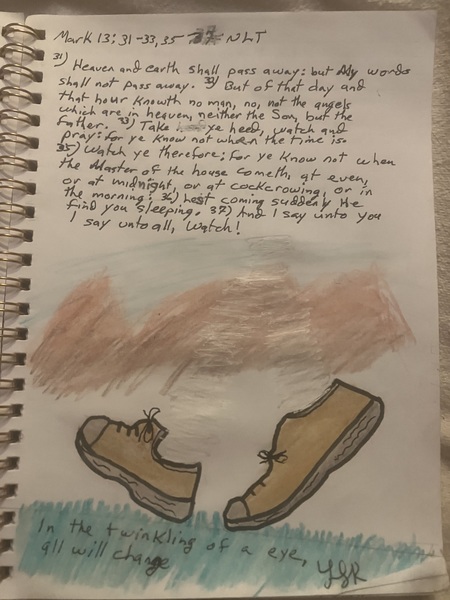 Mark 13:31-33,35-37 NLT
31) Heaven and earth shall pass away: but My words
shall not pass away. 32) But of that day and
that hour knowth no man, no, not the angels
which are in heaven, neither the Son, but the
Father. 33) Take ye heed, watch and
pray: for ye know not when the time is.
35) Watch ye therefore: for ye know not when
the Master of the house cometh, at even,
or at midnight, or at cockcrowing, or in
the morning: 36) Lest coming suddenly He
find you sleeping. 37) And I say unto you
I say unto all, Watch!
In the twinkling of a eye,
all will change